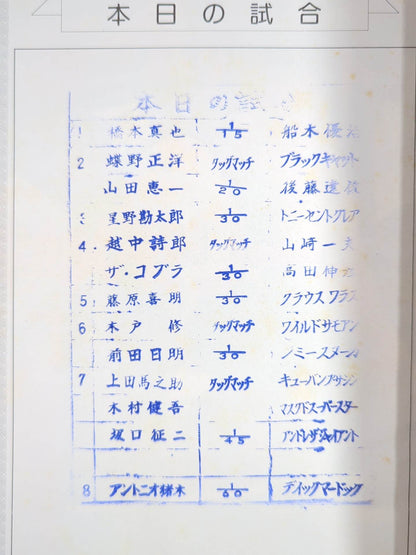 本日の試合
本日の試
1 橋本真也 1/15 船木優治
2 蝶野正洋 タッグマッチ ブラックキャット
山田恵一 1/20 後藤達俊
3 星野勘太郎 1/30 トニーセントクレア
4. 越中詩郎 タッグマッチ 山崎一夫
ザ・コブラ 1/30 高田伸彦
5 藤原喜明 1/30 クラウスワラス
6 木戸 修 タッグマッチ ワイルドサモアン
前田日明 1/30
7 上田馬之助 タッグマッチ キューバンアサシン
木村健吾 マスクドスーパースター
坂口征二 1/45 アンドレザジャイアント
8 アントニオ猪木 1/60 ディックマードック